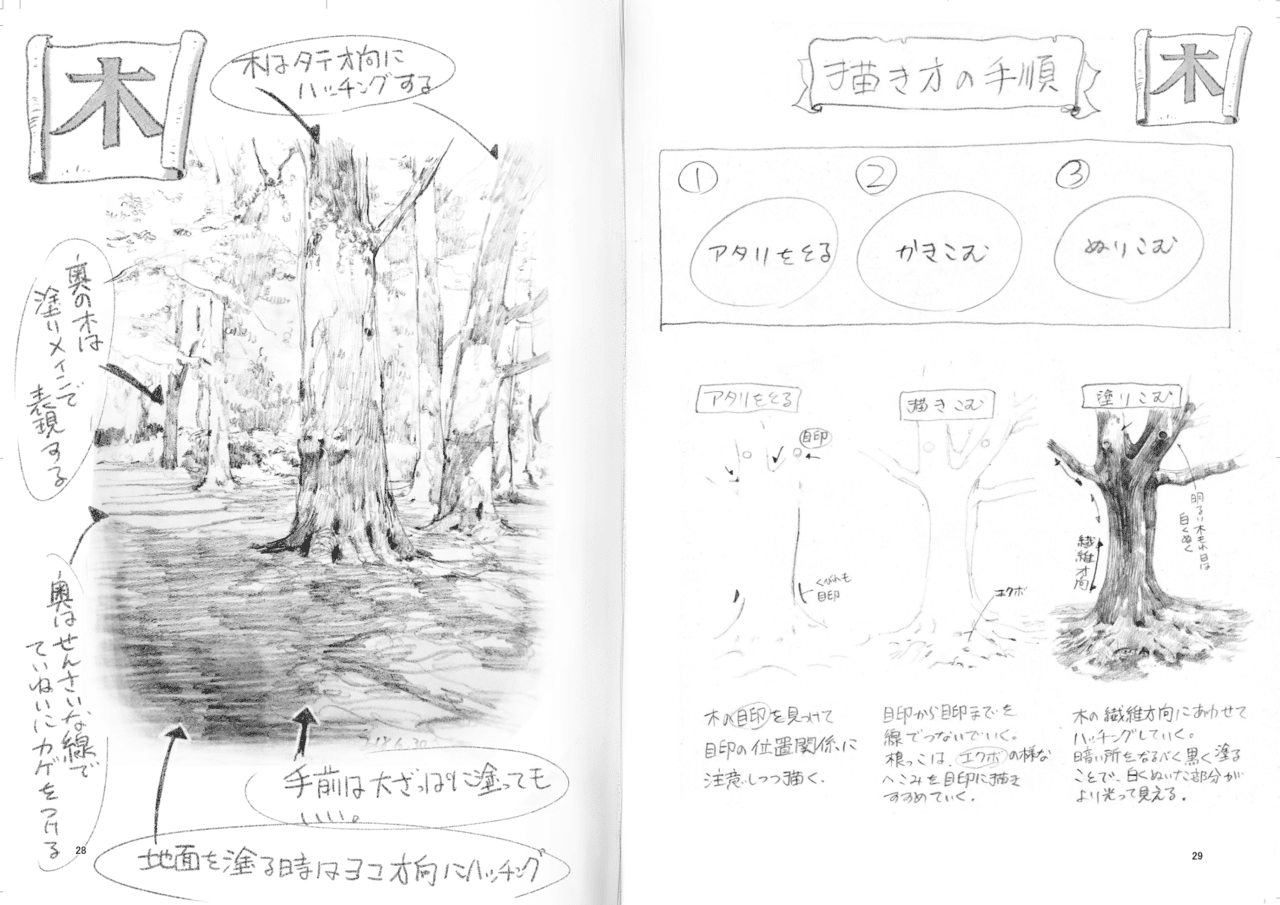 木
木はタテ方向に
ハッチングする
奥の木は
塗りメインで
表現する
奥はせんさいな線で
ていねいにカゲをつける
218.6.30
手前は大ざっぱに塗っても
いい。
地面を塗る時はヨコ方向にハッチング
28
描き方の手順
木
①
アタリをとる
②
かきこむ
③
ぬりこむ
アタリをとる
目印
くびれも
目印
木の目印を見つけて
目印の位置関係に
注意しつつ描く。
描きこむ
エクボ
目印から目印までを
線でつないでいく。
根っこは、エクボの様な
へこみを目印に描き
すすめていく。
塗りこむ
明るい木もれ日は
白くぬく
繊維方向
木の繊維方向にあわせて
ハッチングしていく。
暗い所をなるべく黒く塗る
ことで、白くぬいた部分が
より光って見える。
29